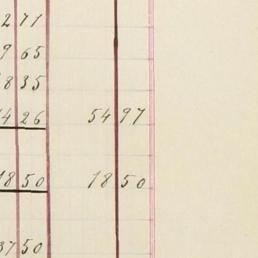 2 71
9 65
8 35
4 26 54 97
18 50 18 50
37 50